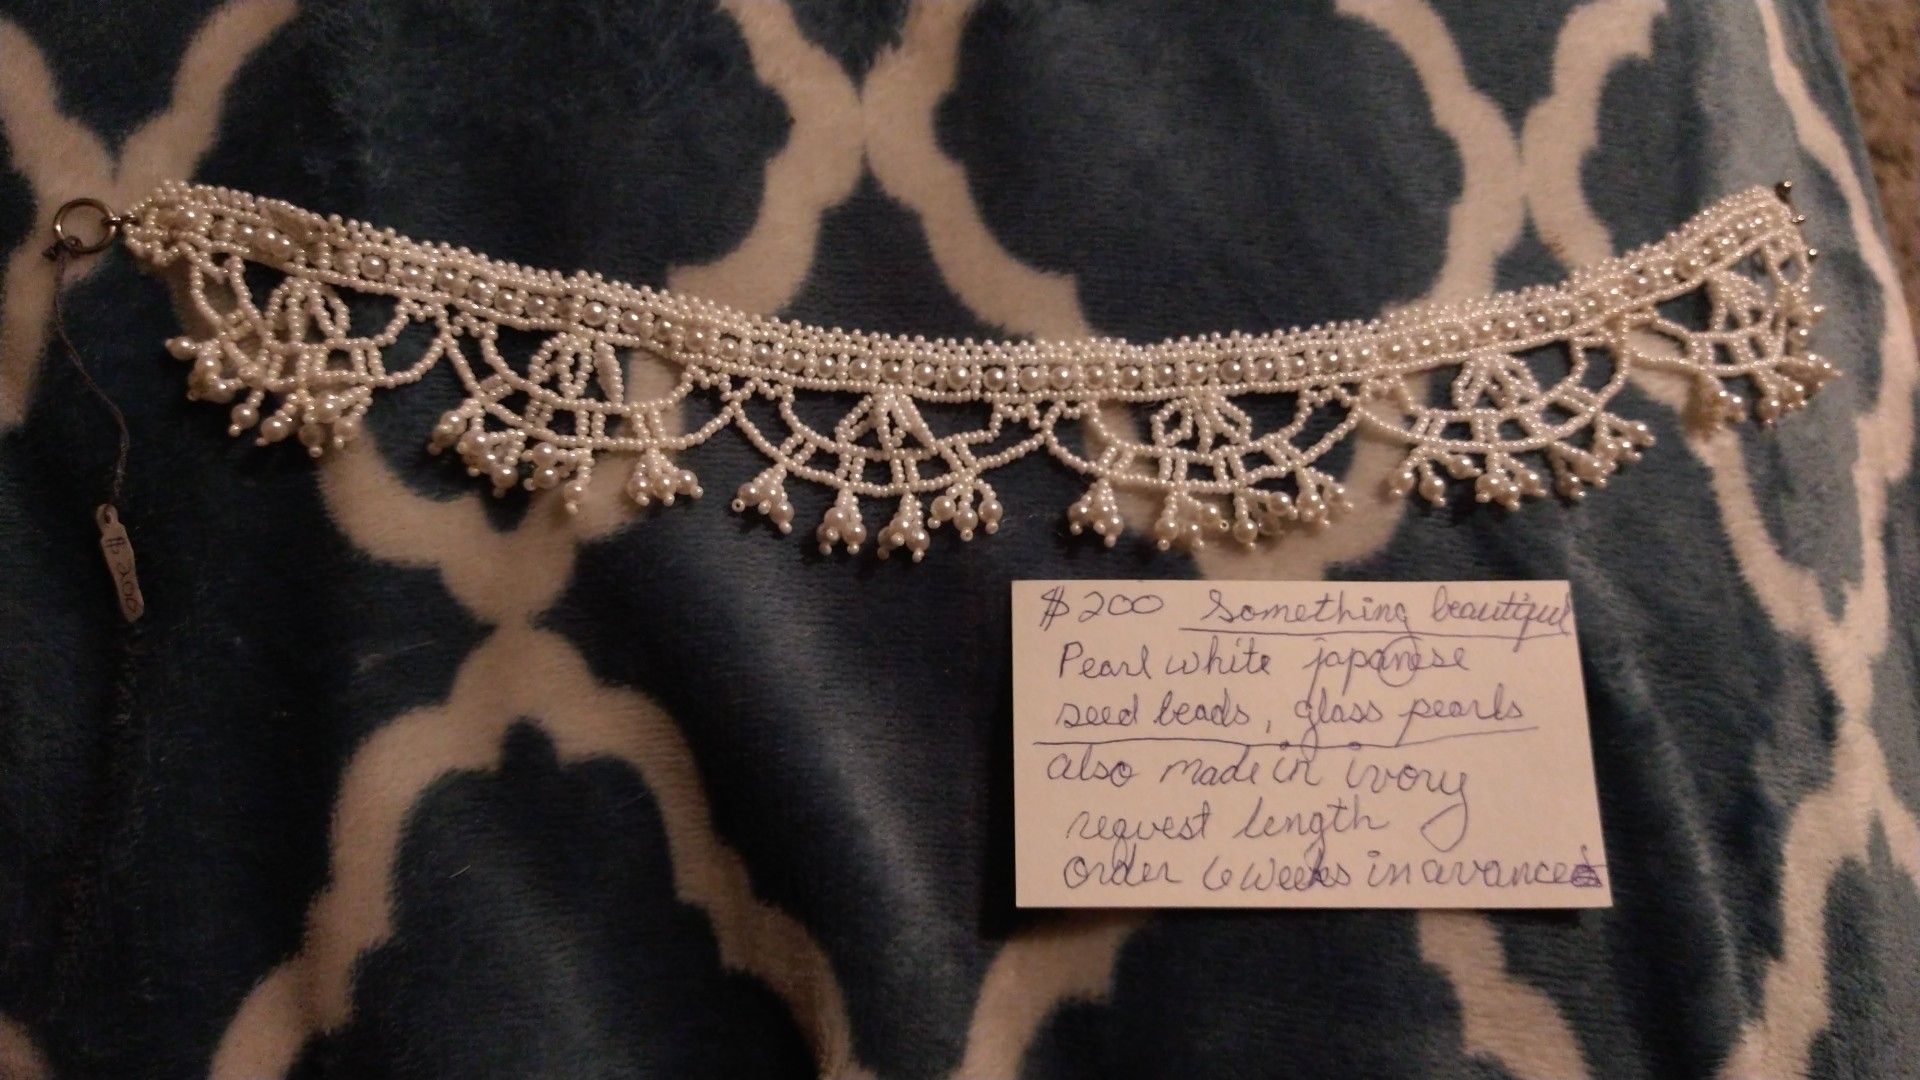 $200 Something beautiful
Pearl white japanese
seed beads, glass pearls
also made in ivory
request length
order 6 weeks in avance
$200